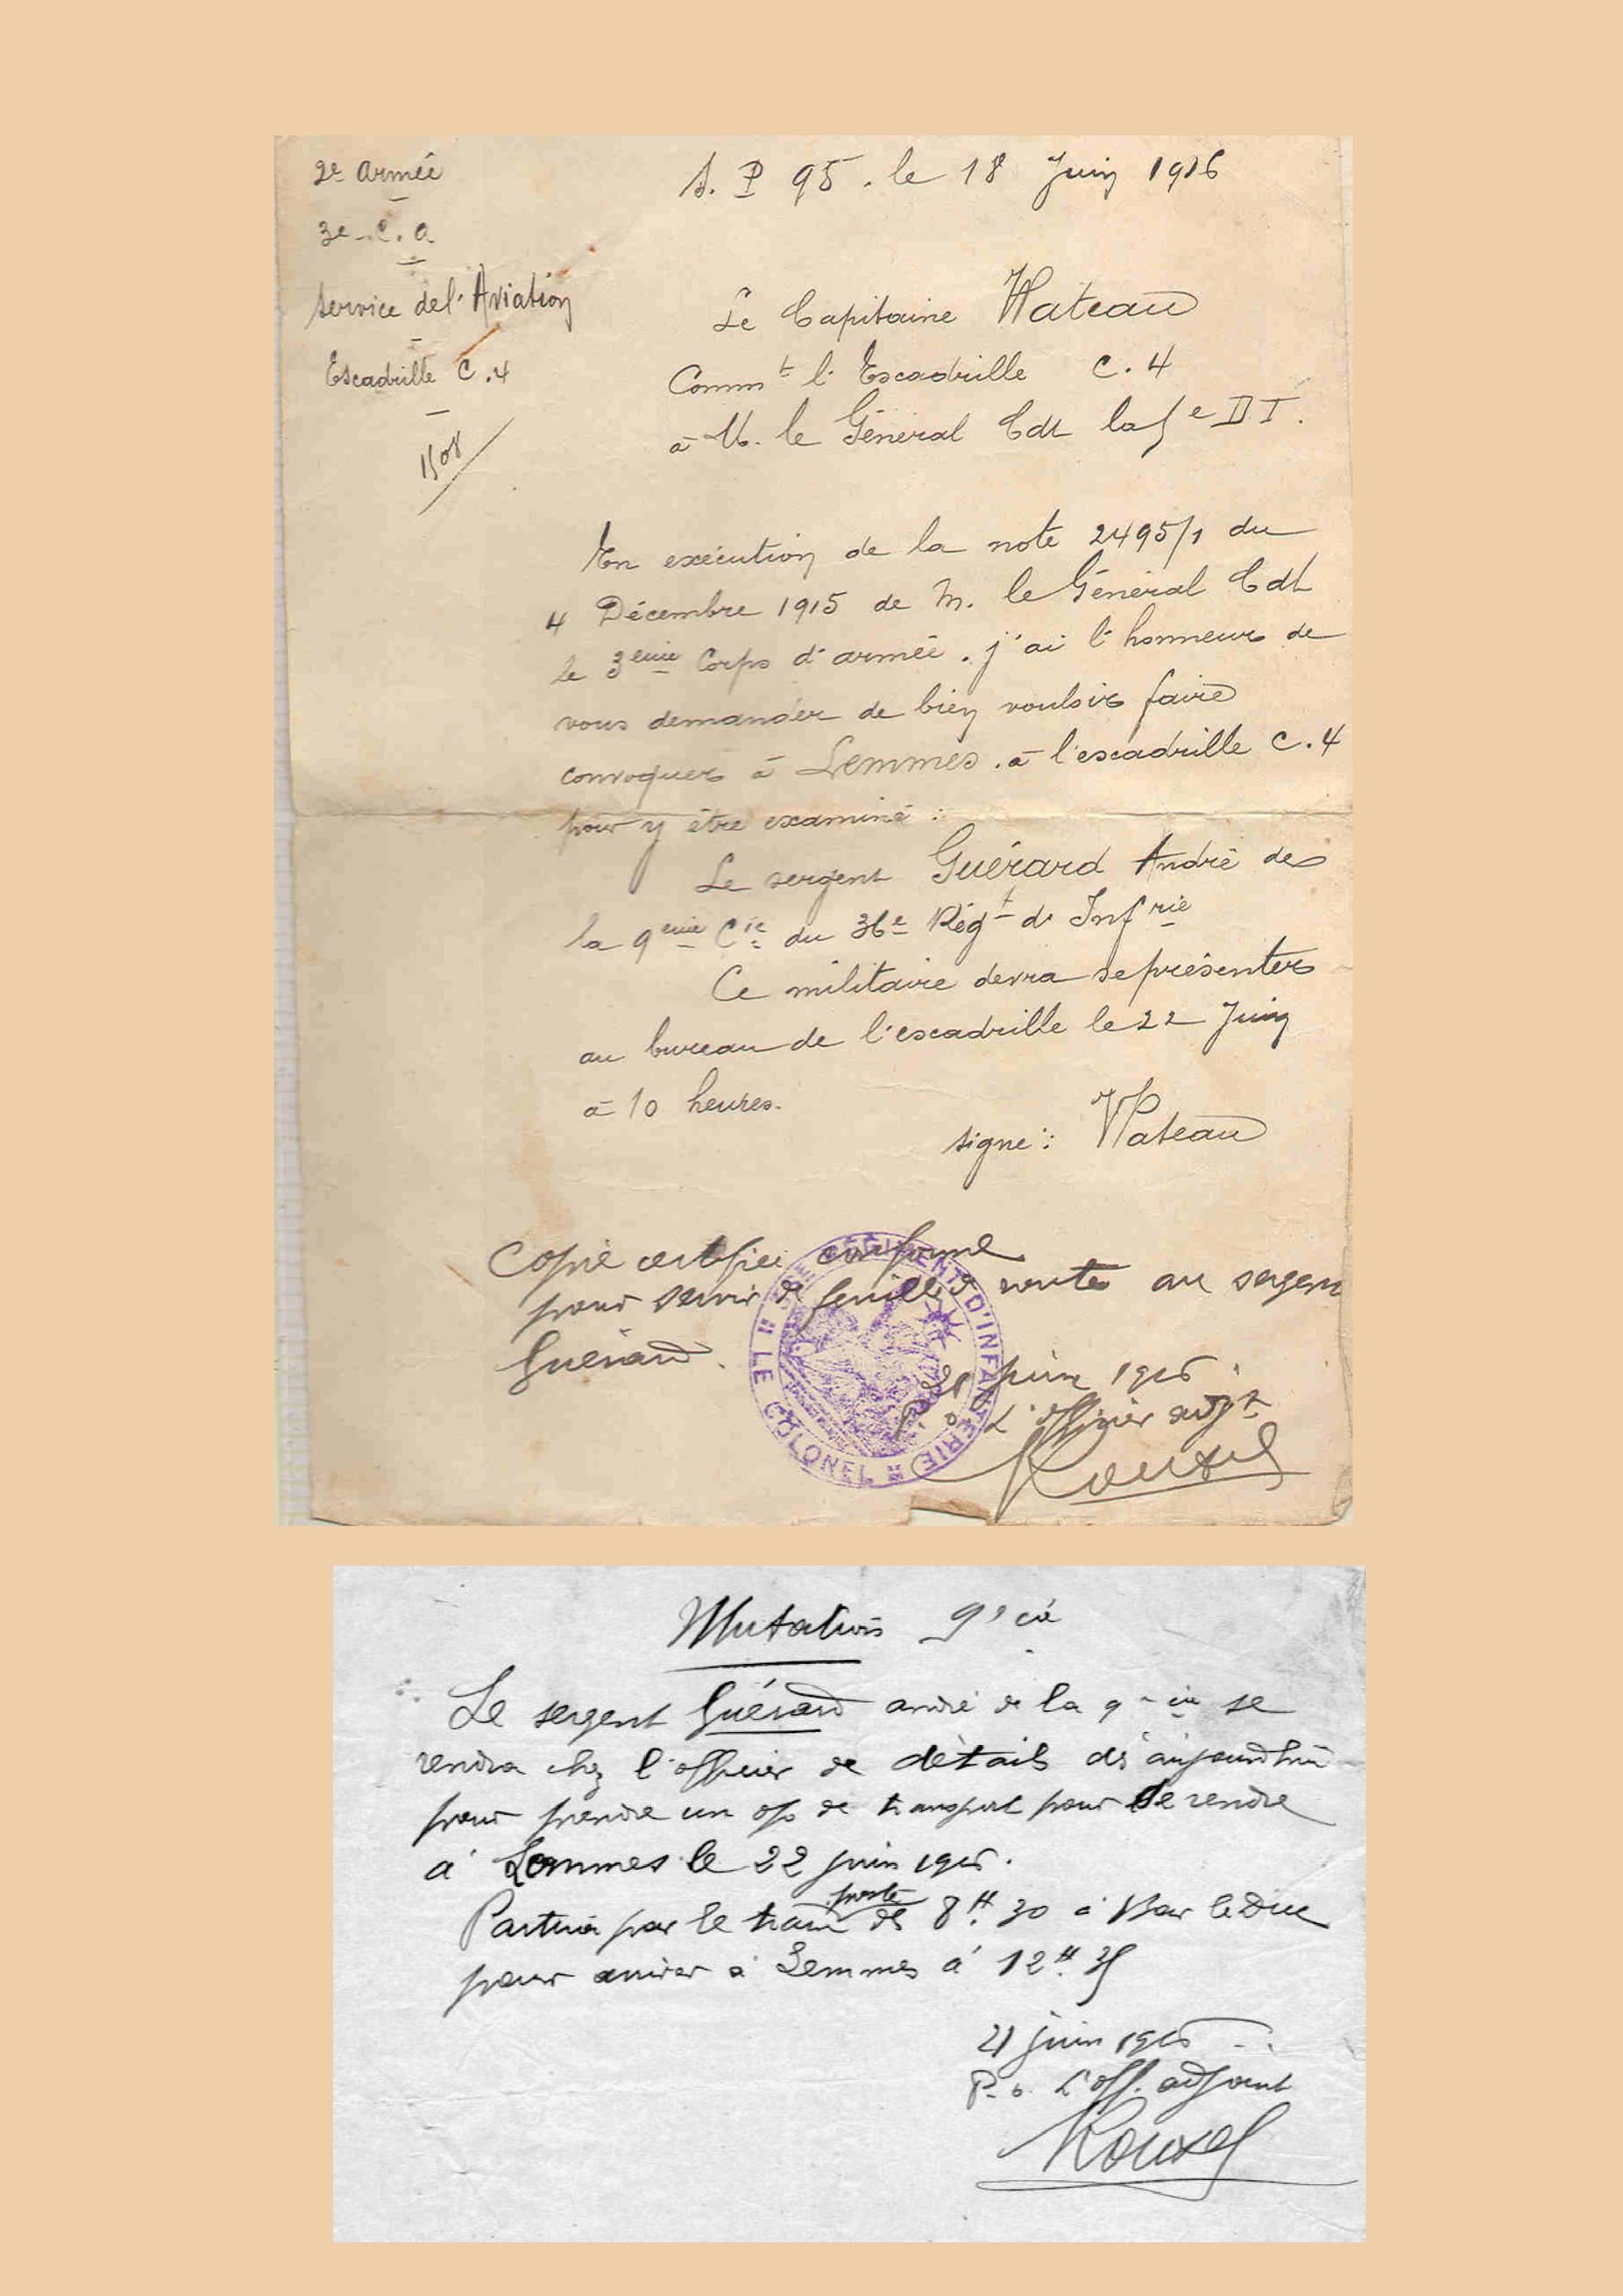 2e Armée
3e C. A
Service de l'Aviation
Escadrille C.4
1508
S. P 95. le 18 Juin 1916
Le Capitaine Wateau
Commt l'Escadrille C.4
à M. le Général Cdt la 5e D I.
En exécution de la note 2495/1 du
4 Décembre 1915 de M. le Général Cdt
le 3eme Corps d'armée. j'ai l'honneur de
vous demander de bien vouloir faire
convoquer à Lemmes. à l'escadrille C.4
pour y être examiné :
Le sergent Guérard André de
la 9eme Cie du 36e Régt d'Infrie
Ce militaire devra se présenter
au bureau de l'escadrille le 22 Juin
à 10 heures.
signé : Wateau
Copie certifiée conforme
pour servir de feuille de route au sergent
Guérard.
21 juin 1916.
P. o. L'officier adjt
Rouxel
36ME RÉGIMENT D'INFANTERIE
LE COLONEL
Mutations 9e cie
Le sergent Guérard andré de la 9e cie se
rendra chez l'officier de détails dès aujourd'hui
pour prendre un op de transport pour se rendre
à Lemmes le 22 juin 1916.
poste
Partira par le train de 8H.30 à Bar le Duc
pour arriver à Lemmes à 12H.35
21 juin 1916
P. o. L'off. adjoint
Rouxel